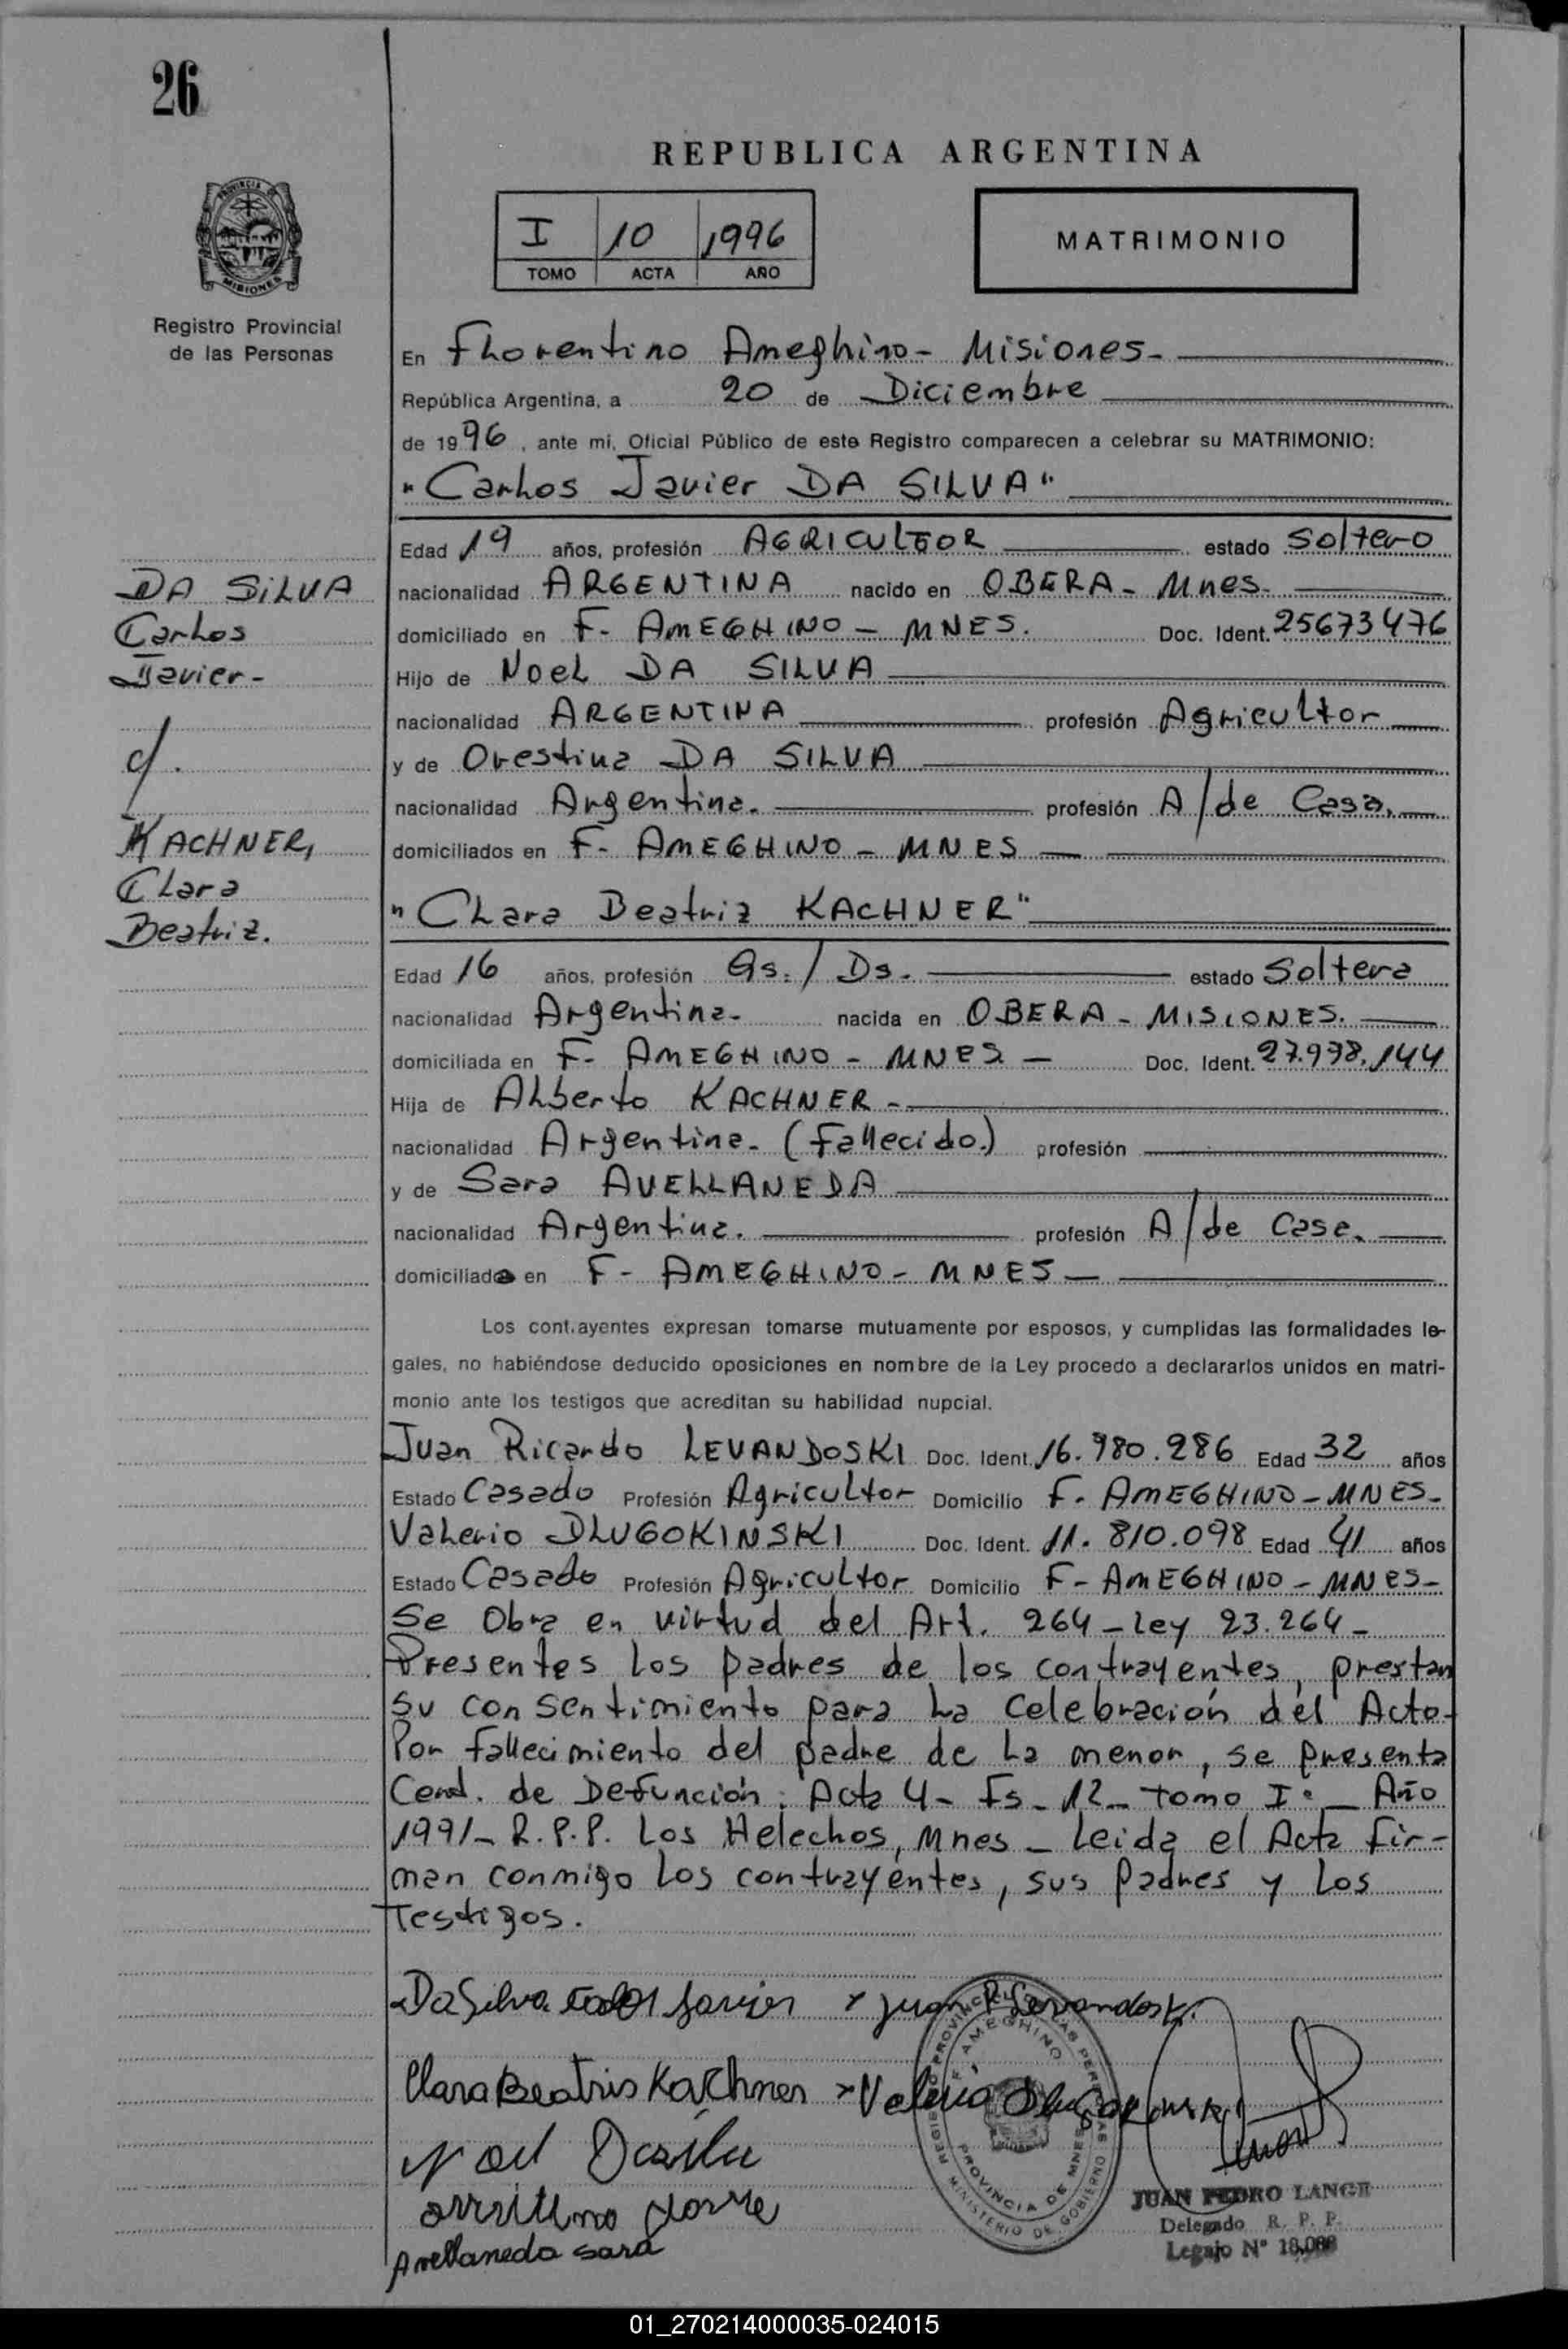 26
REPUBLICA ARGENTINA
I 10 1996
TOMO ACTA AÑO
MATRIMONIO
PROVINCIA DE
MISIONES
Registro Provincial
de las Personas
En Florentino Ameghino- Misiones-
República Argentina, a 20 de Diciembre
de 1996, ante mi, Oficial Público de este Registro comparecen a celebrar su MATRIMONIO:
"Carlos Javier DA SILVA"
Edad 19 años, profesión AGRICULTOR estado Soltero
nacionalidad ARGENTINA nacido en OBERA- Mnes.
domiciliado en F- AMEGHINO - MNES. Doc. Ident. 25673476
Hijo de Noel DA SILVA
nacionalidad ARGENTINA profesión Agricultor
y de Orestina DA SILVA
nacionalidad Argentina. profesión A/de Casa.
domiciliados en F- AMEGHINO - MNES
"Clara Beatriz KACHNER"
Edad 16 años, profesión Qs./Ds. estado Soltera
nacionalidad Argentina- nacida en OBERA- MISIONES.
domiciliada en F- AMEGHINO - MNES - Doc. Ident. 27.978.144
Hija de Alberto KACHNER-
nacionalidad Argentina- (Fallecido.) profesión
y de Sara AVELLANEDA
nacionalidad Argentina. profesión A/de Casa.
domiciliada en F- AMEGHINO- MNES
DA SILVA
Carlos
Javier-
c/.
KACHNER,
Clara
Beatriz.
Los contrayentes expresan tomarse mutuamente por esposos, y cumplidas las formalidades le-
gales, no habiéndose deducido oposiciones en nombre de la Ley procedo a declararlos unidos en matri-
monio ante los testigos que acreditan su habilidad nupcial.
Juan Ricardo LEVANDOSKI Doc. Ident. 16.980.286 Edad 32 años
Estado Casado Profesión Agricultor Domicilio F. AMEGHINO-MNES-
Valerio DLUGOKINSKI Doc. Ident. 11.810.098 Edad 41 años
Estado Casado Profesión Agricultor Domicilio F- AMEGHINO-MNES-
Se Obra en virtud del Art. 264-Ley 23.264-
Presentes los padres de los contrayentes, prestan
su consentimiento para la celebración del Acto-
Por fallecimiento del padre de la menor, se presenta
Cert. de Defunción: Acta 4- Fs-12- Tomo Iº- Año
1991- R.P.P. Los Helechos, Mnes- Leida el Acta fir-
man conmigo los contrayentes, sus padres y los
Testigos.
Da Silva Carlos Javier x Juan R Levandoski
Clara Beatris Kachner x Valerio Dlugokinski
Noel Dasilva
Avellaneda Sara
REGISTRO PROVINCIAL DE LAS PERSONAS
F. AMEGHINO
PROVINCIA DE MNES
MINISTERIO DE GOBIERNO
JUAN PEDRO LANGE
Delegado R. P. P.
Legajo Nº
01_270214000035-024015